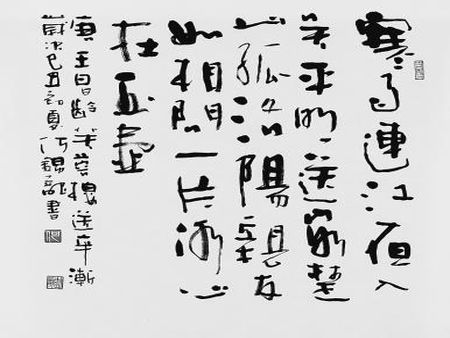 寒雨連江夜入
吳平明送客楚
山孤洛陽親友
如相問一片冰心
在玉壺
唐王昌齡芙蓉樓送辛漸
歲次己丑初夏何錫書